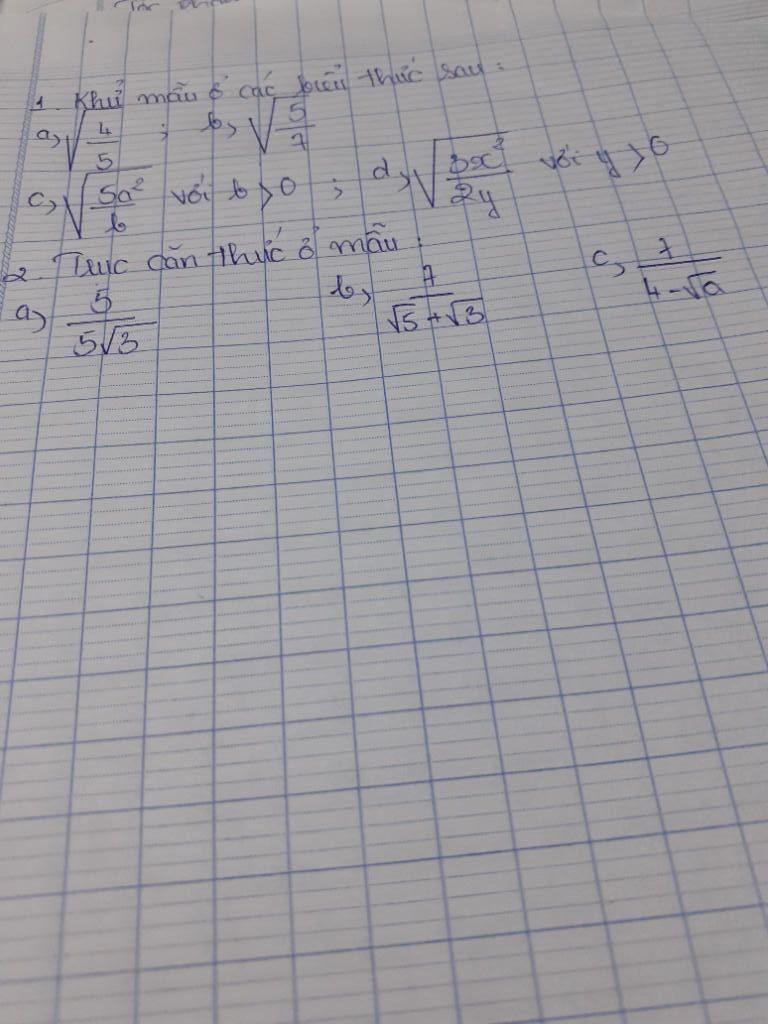 1. Khử mẫu ở các biểu thức sau:
a, √(4/5) ; b, √(5/7)
c, √(5a²/b) với b > 0 ; d, √(3x²/2y) với y > 0
2. Trục căn thức ở mẫu:
a, 5/(5√3) b, 7/(√5 + √3) c, 7/(4 - √a)